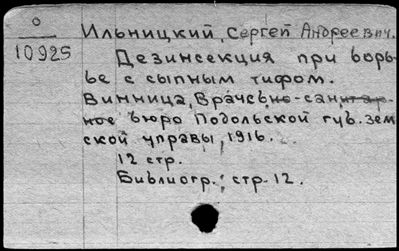 О
10925
Ильницкий, Сергей Андреевич.
Дезинсекция при борь-
бе с сыпным тифом.
Винница, Врачебно-санитар-
ное бюро Подольской губ. зем
ской управы, 1916.
12 стр.
Библиогр.: стр. 12.